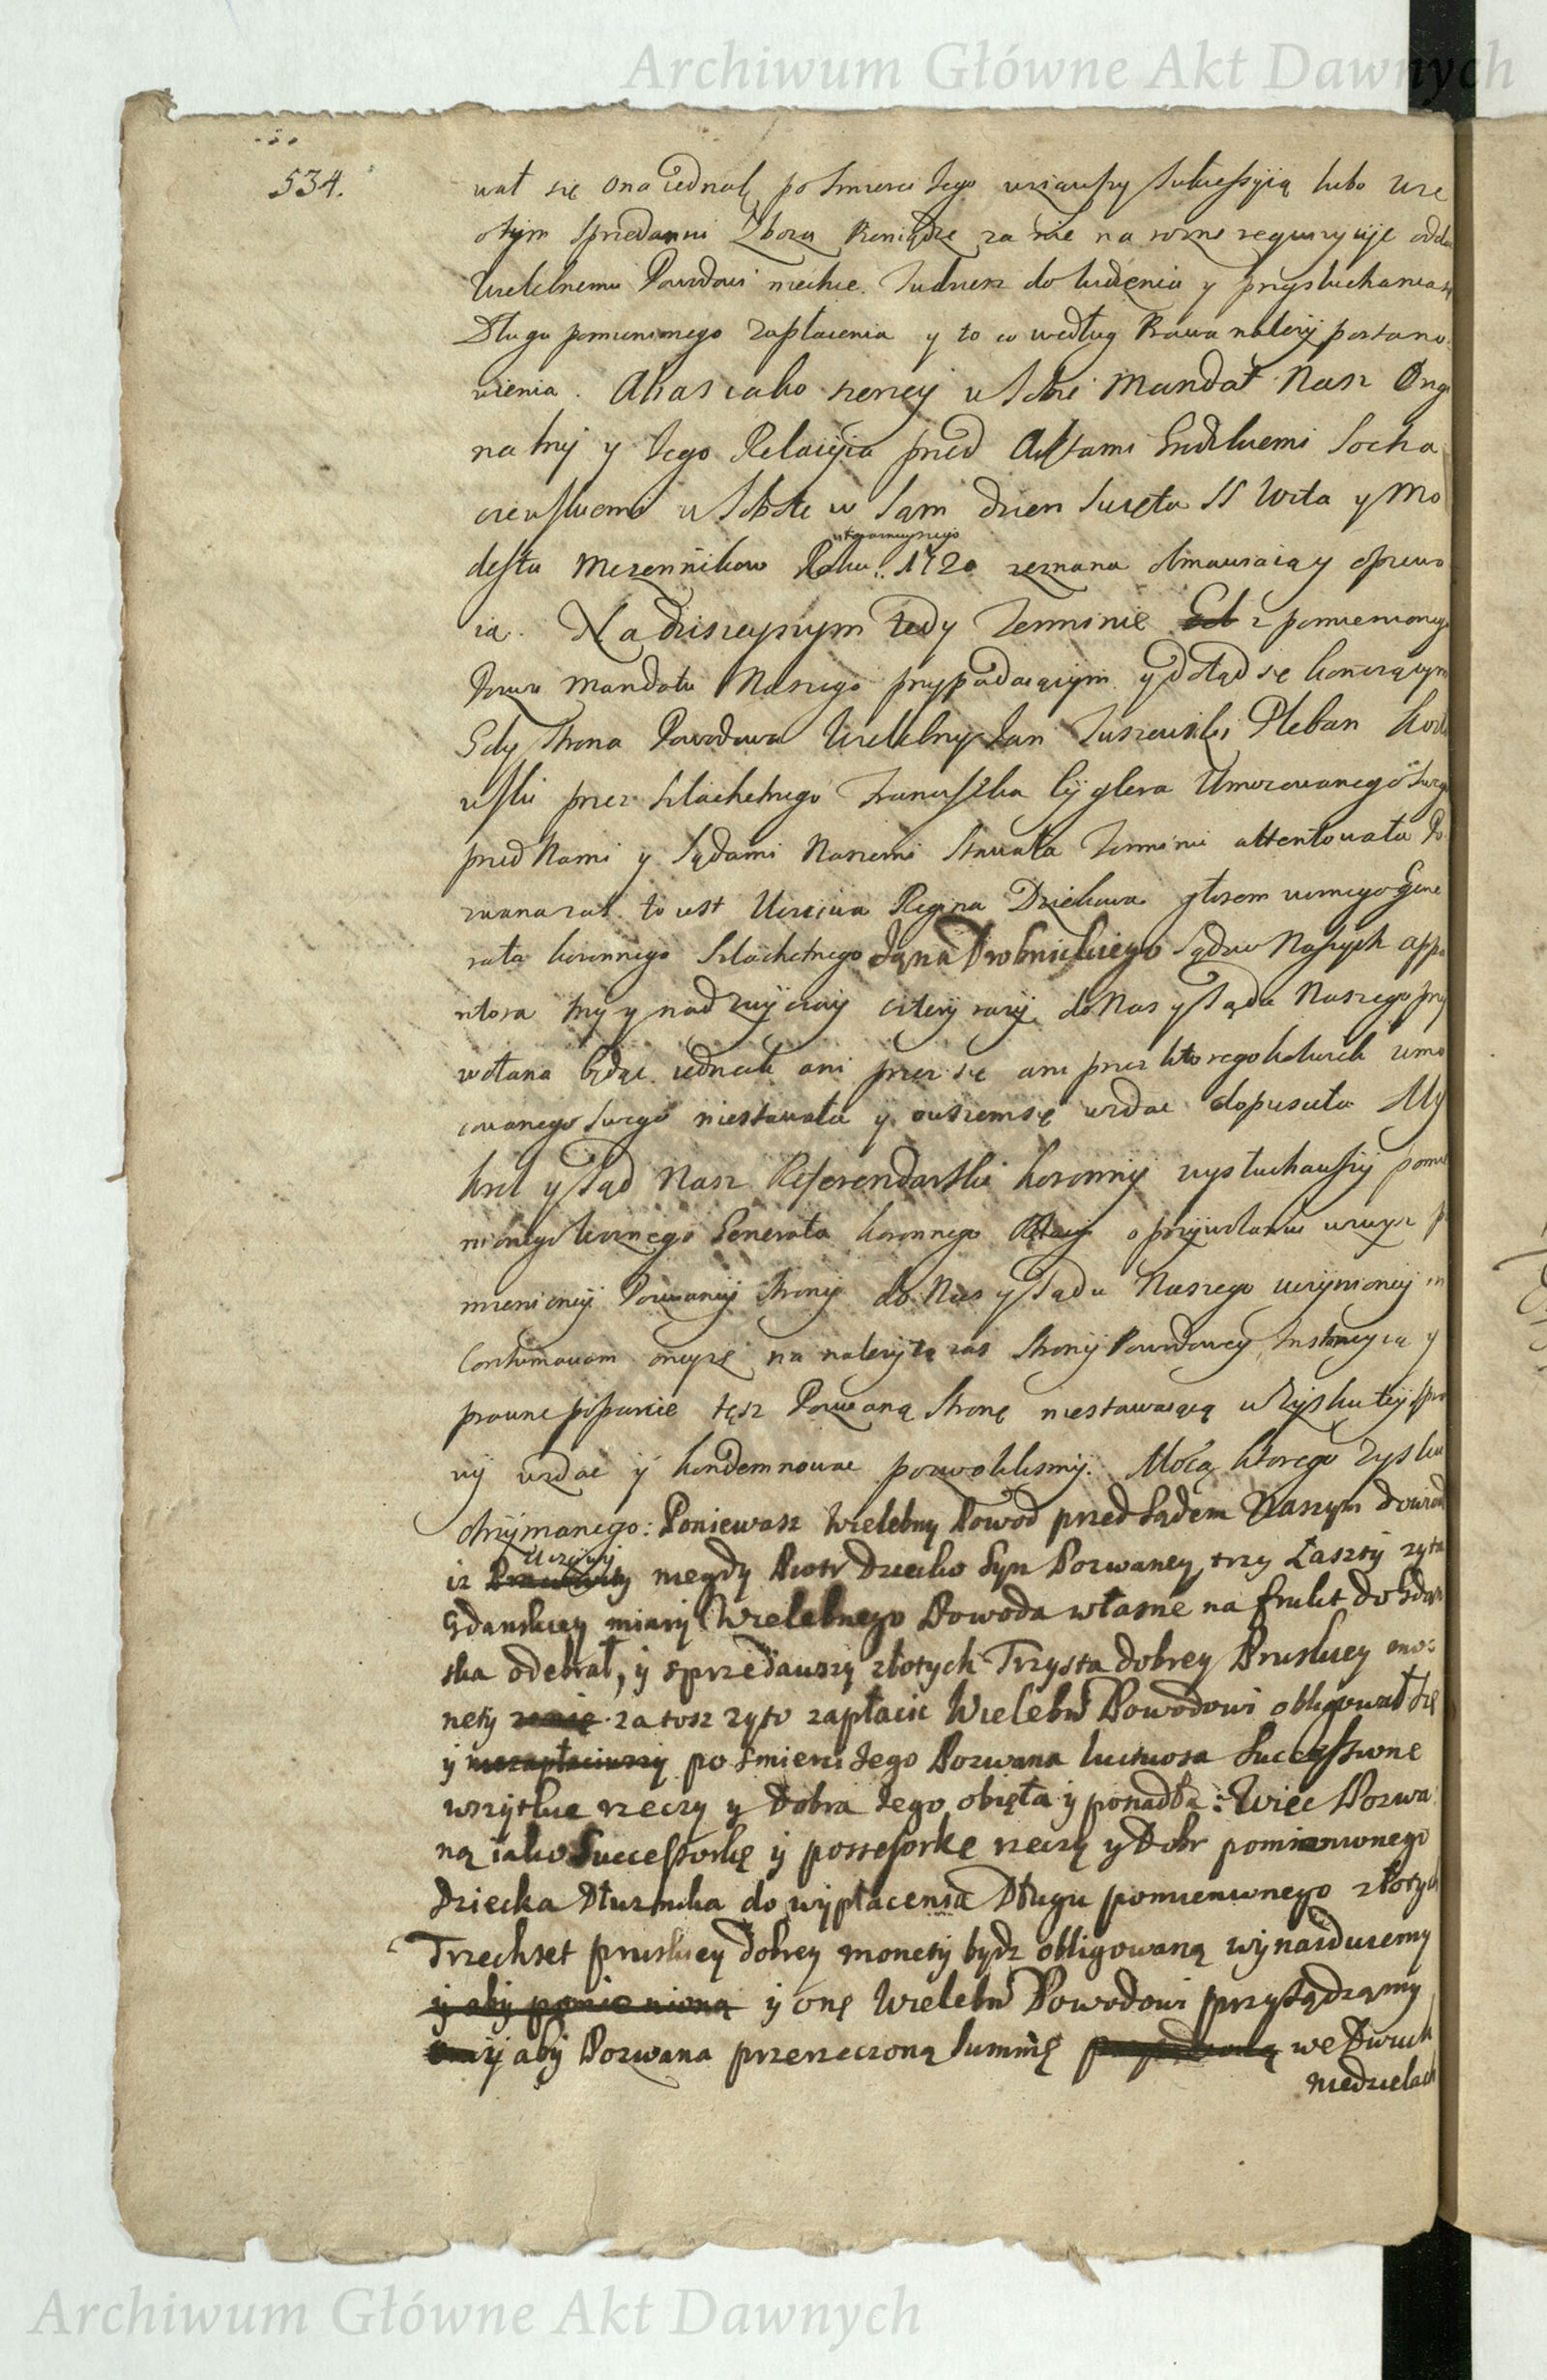 Archiwum Główne Akt Dawnych
534.
wał się ona iednak po smierci Jego wziąwszy sukcessyią lubo wie
o tym sprzedanui Zboza Pieniądze za nie na rozne oddac
Wielebnemu Powodowi niechce. Tudziesz do widzenia y przysłuchania się
Długu pomienionego zapłacenia y to co według Prawa nalezy postano
wienia. Alias iako szerzey w sobie Mandat Nasz Orygi
nalny y Jego Relacyia przed Aktami Grodzkiemi Socha
czewskiemi w Sobotę w sam dzien Swięta SS Wita y Mo
desta Męzennikow Roku 1720 zeznana obmawiaią y opiewa
ią. Na dzisieyszym tedy Terminie z pomienionego
Pozwu Mandatu Naszego przypadaiącym y dotąd się konczącym
Gdy strona Powodowa Wielebny Jan Pleban
przez Szlachetnego Franciszka Cyglera Umocowanego Swego
przed Nami y Sądami Naszemi stawała Terminu attentowała Po
zwana zas to iest Uczciwa Regina Dziekowa głosem woznego Gene
rała koronnego Szlachetnego Jana Drobnickiego Sądow Naszych appa
ritora trzy y nadzwyczay cztery razy do Nas y Sądu Naszego przy
wołana będąc iednak ani przez się ani przez ktoregokolwiek umo
cowanego swego niestawała y owszem się wzdac dopusciła My
Krol y Sąd Nasz Referendarski koronny wysłuchawszy pomie
nionego Woznego Generała koronnego Relacyi o przywołaniu wzwyz po
mienioney Pozwaney strony do Nas y Sądu Naszego uczynioney in
Contumaciam oneyze na nalezytą zas strony Powodowey Instancyią y
prawne poparcie tęsz Pozwaną stronę niestawaiącą w Zysku tey spra
wy wzdac y kondemnowac pozwolilismy. Mocą ktorego Zysku
otrzymanego: Poniewasz Wielebny Powod przed Sądem Naszym dowiodł
iz Uczciwy niegdy Piotr Dziecko Syn Pozwaney trzy Łaszty zyta
Gdanskiey miary Wielebnego Powoda własne na frukt do Gdan
ska odebrał, y sprzedawszy złotych Trzysta dobrey Pruskiey mo:
nety za tosz zyto zapłacic Wielebn Powodowi obligował się
y niezapłaciwszy po smierci Jego Pozwana luctuosa Successione
wszytkie rzeczy y Dobra Jego obięła y posiadła: Więc Pozwa
ną iako Successorkę y possesorkę rzeczy y Dobr pomienionego
Dziecka Dłuznika do wypłacenia Długu pomienionego złotych
Trzechset pruskiey dobrey monety bydz obligowaną wynaiduiemy
y aby pomienioną y onę Wielebn Powodowi przysądzamy
y aby Pozwana przerzeczoną summę we Dwuch
niedzielach
Archiwum Główne Akt Dawnych